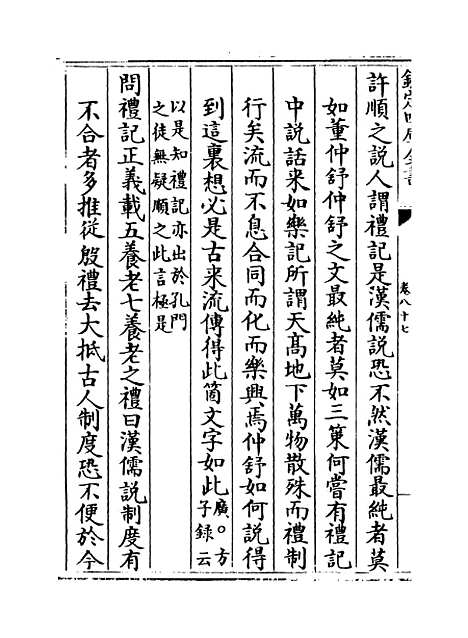 欽定四庫全書
卷八十七
許順之說人謂禮記是漢儒說恐不然漢儒最純者莫
如董仲舒仲舒之文最純者莫如三策何嘗有禮記
中說話來如樂記所謂天髙地下萬物散殊而禮制
行矣流而不息合同而化而樂興焉仲舒如何說得
到這裏想必是古来流傳得此箇文字如此廣。方子録云
以是知禮記亦出於孔門
之徒無疑順之此言極是
問禮記正義載五養老七養老之禮曰漢儒說制度有
不合者多推從殷禮去大抵古人制度恐不便於今